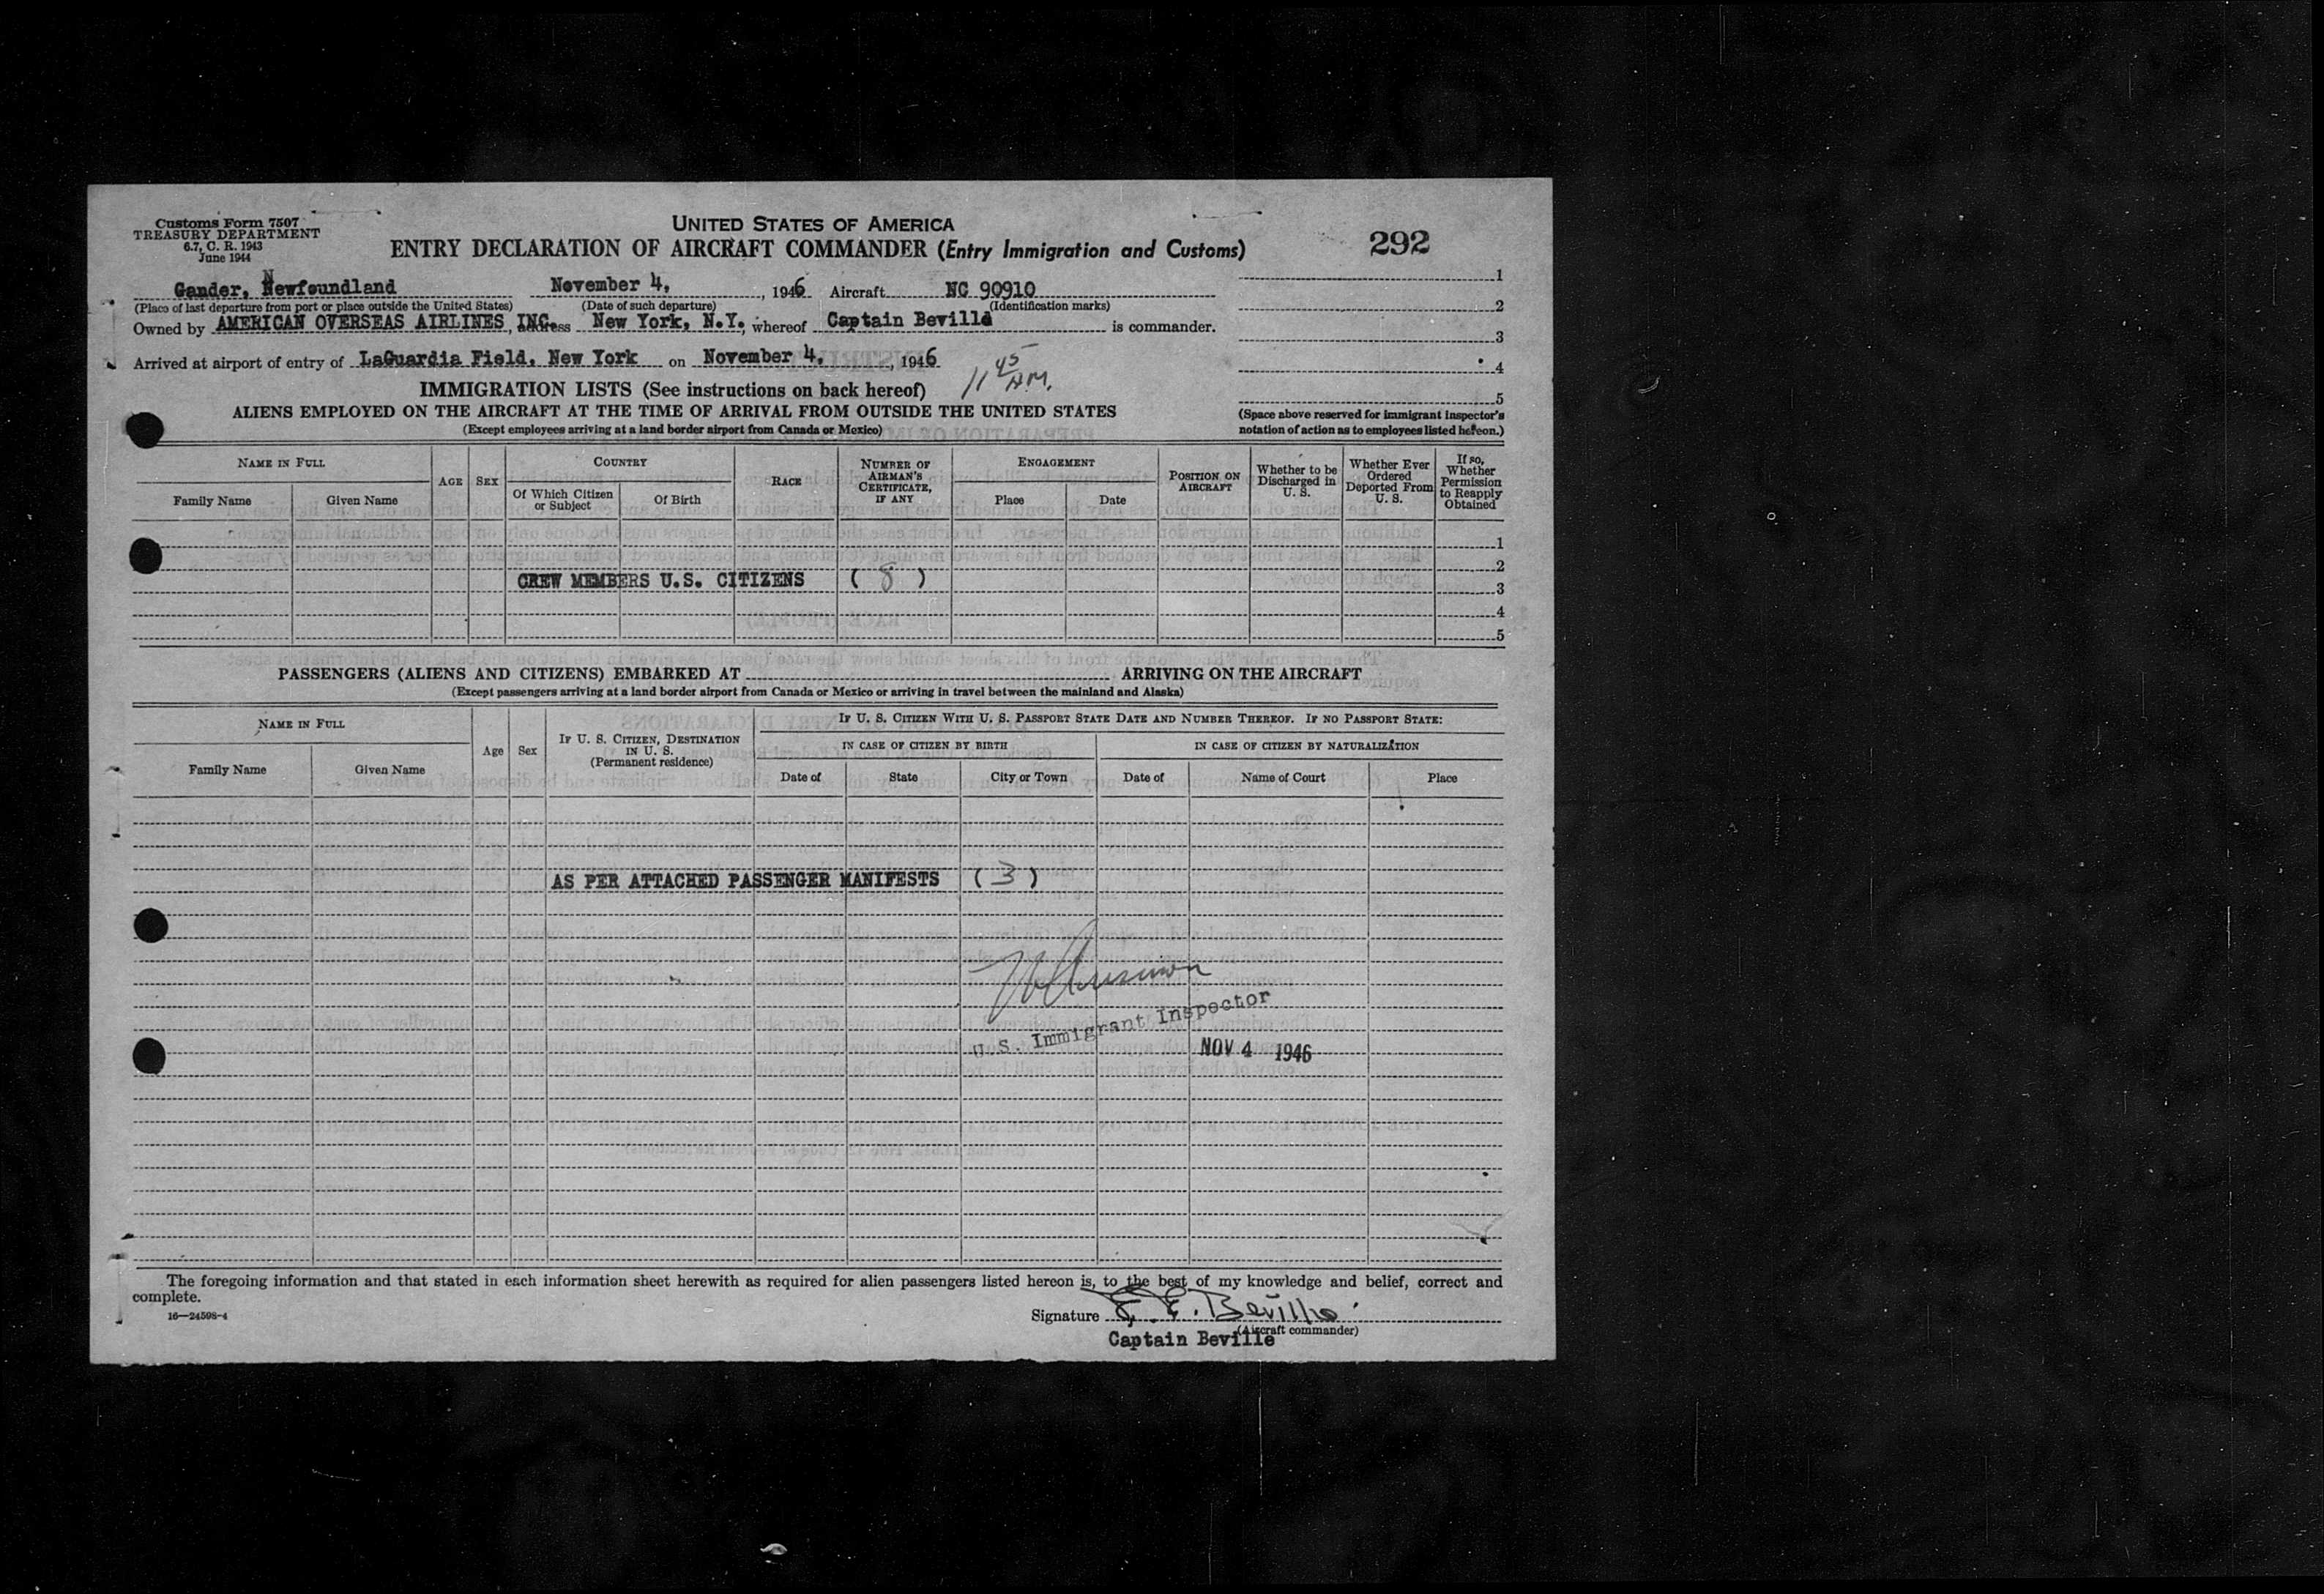 Customs Form 7507
TREASURY DEPARTMENT
6.7, C. R. 1943
June 1944
UNITED STATES OF AMERICA
ENTRY DECLARATION OF AIRCRAFT COMMANDER (Entry Immigration and Customs)
292
Gander, Newfoundland November 4, 1946 Aircraft NC 90910
(Place of last departure from port or place outside the United States) (Date of such departure) (Identification marks)
Owned by AMERICAN OVERSEAS AIRLINES, INC. address New York, N.Y., whereof Captain Beville is commander.
Arrived at airport of entry of LaGuardia Field, New York on November 4, 1946
11 45 AM.
1
2
3
4
5
IMMIGRATION LISTS (See instructions on back hereof)
ALIENS EMPLOYED ON THE AIRCRAFT AT THE TIME OF ARRIVAL FROM OUTSIDE THE UNITED STATES
(Except employees arriving at a land border airport from Canada or Mexico)
(Space above reserved for immigrant inspector's
notation of action as to employees listed hereon.)
NAME IN FULL
Family Name
Given Name
AGE
SEX
COUNTRY
Of Which Citizen
or Subject
Of Birth
RACE
NUMBER OF
AIRMAN'S
CERTIFICATE,
IF ANY
ENGAGEMENT
Place
Date
POSITION ON
AIRCRAFT
Whether to be
Discharged in
U. S.
Whether Ever
Ordered
Deported From
U. S.
If so,
Whether
Permission
to Reapply
Obtained
1
2
CREW MEMBERS U.S. CITIZENS ( 8 )
3
4
5
PASSENGERS (ALIENS AND CITIZENS) EMBARKED AT ARRIVING ON THE AIRCRAFT
(Except passengers arriving at a land border airport from Canada or Mexico or arriving in travel between the mainland and Alaska)
NAME IN FULL
Family Name
Given Name
Age
Sex
IF U. S. CITIZEN, DESTINATION
IN U. S.
(Permanent residence)
IF U. S. CITIZEN WITH U. S. PASSPORT STATE DATE AND NUMBER THEREOF. IF NO PASSPORT STATE:
IN CASE OF CITIZEN BY BIRTH
Date of
State
City or Town
IN CASE OF CITIZEN BY NATURALIZATION
Date of
Name of Court
Place
AS PER ATTACHED PASSENGER MANIFESTS ( 3 )
U.S. Immigrant Inspector
NOV 4 1946
The foregoing information and that stated in each information sheet herewith as required for alien passengers listed hereon is, to the best of my knowledge and belief, correct and
complete.
16—24598-4
Signature E. E. Beville
(Aircraft commander)
Captain Beville